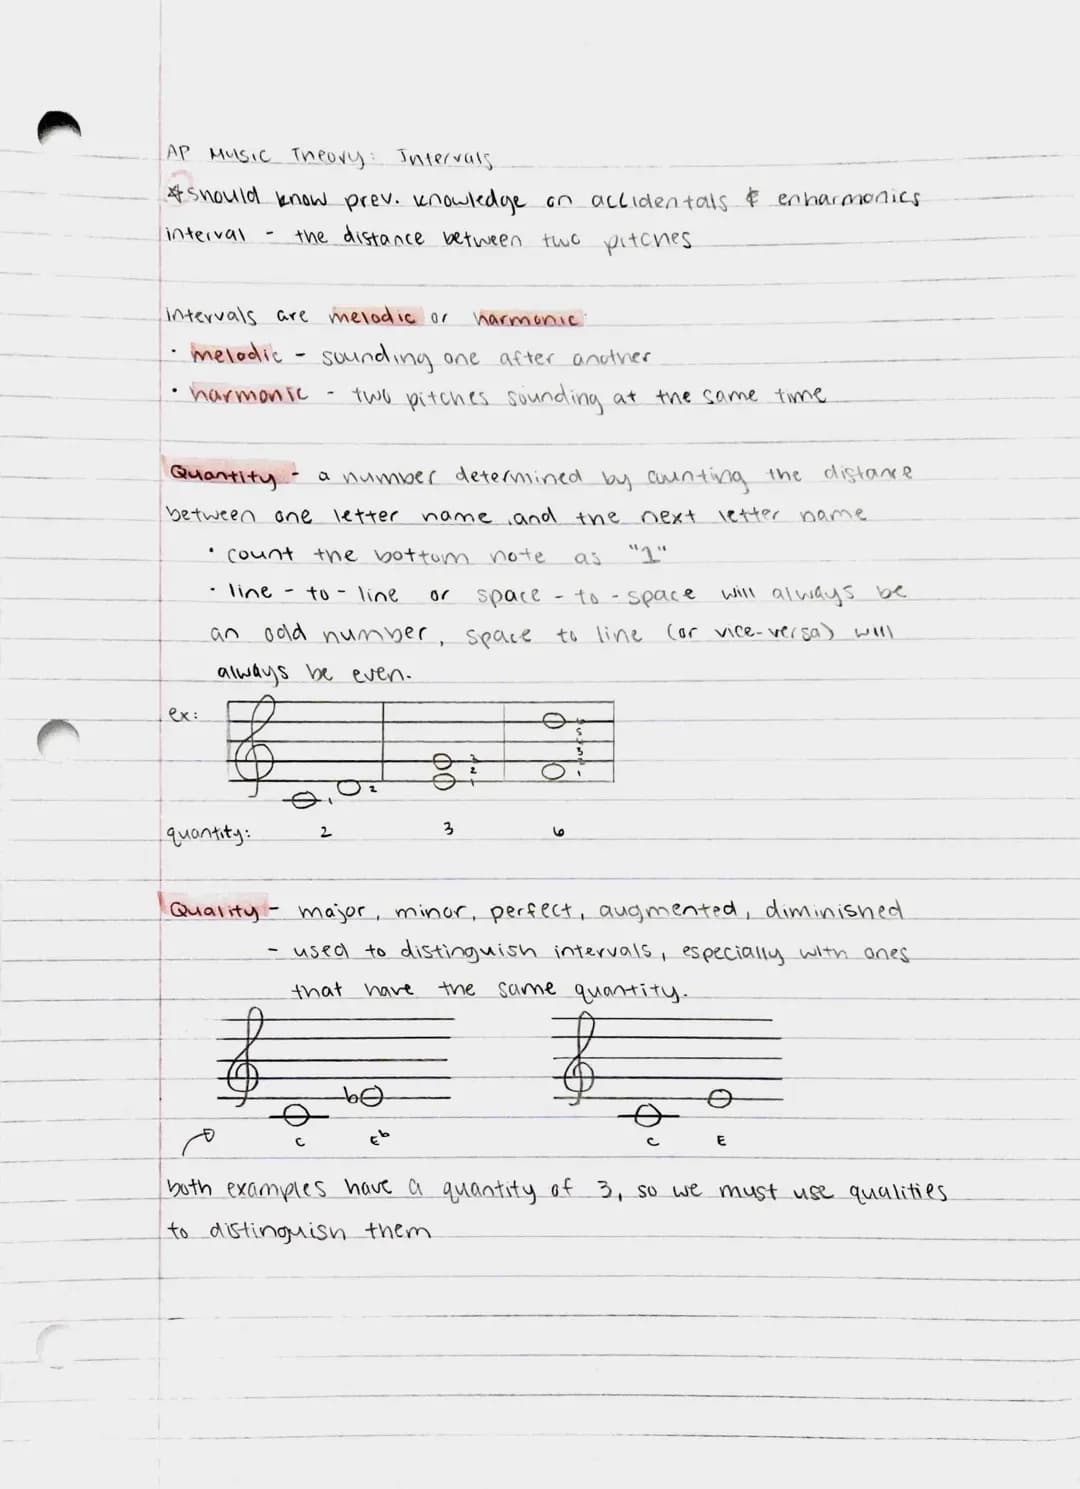 AP Music Theory: Intervals
* should know prev. knowledge on accidentals & enharmonics
interval - the distance between two pitches
intervals are melodic or harmonic:
· melodic - sounding one after another
· harmonic - two pitches sounding at the same time
Quantity - a number determined by counting the distance
between one letter name and the next letter name
· count the bottom note as "1"
· line-to-line or space-to-space will always be
an odd number, space to line (or vice-versa) will
always be even.
ex:
1 2
3 2 1
6 5 3 1
quantity: 2 3 6
Quality - major, minor, perfect, augmented, diminished
- used to distinguish intervals, especially with ones
that have the same quantity.
♭
C E♭ C E
both examples have a quantity of 3, so we must use qualities
to distinguish them